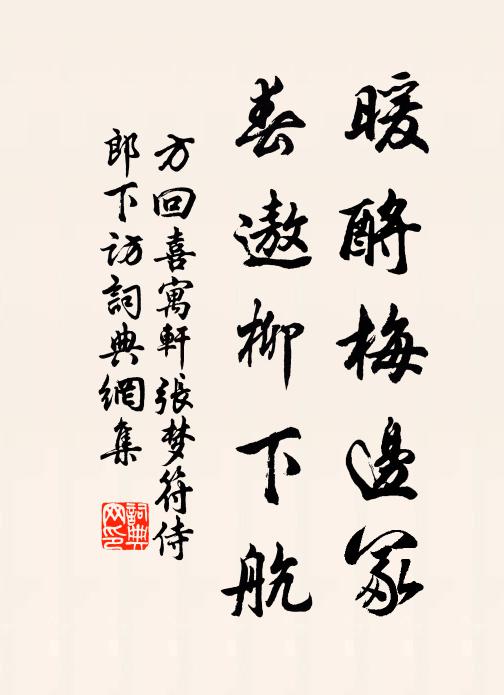 暖酹梅邊冢
春遨柳下航
方回喜寓軒張梦符侍
郎下访詞典網集
詞典网印